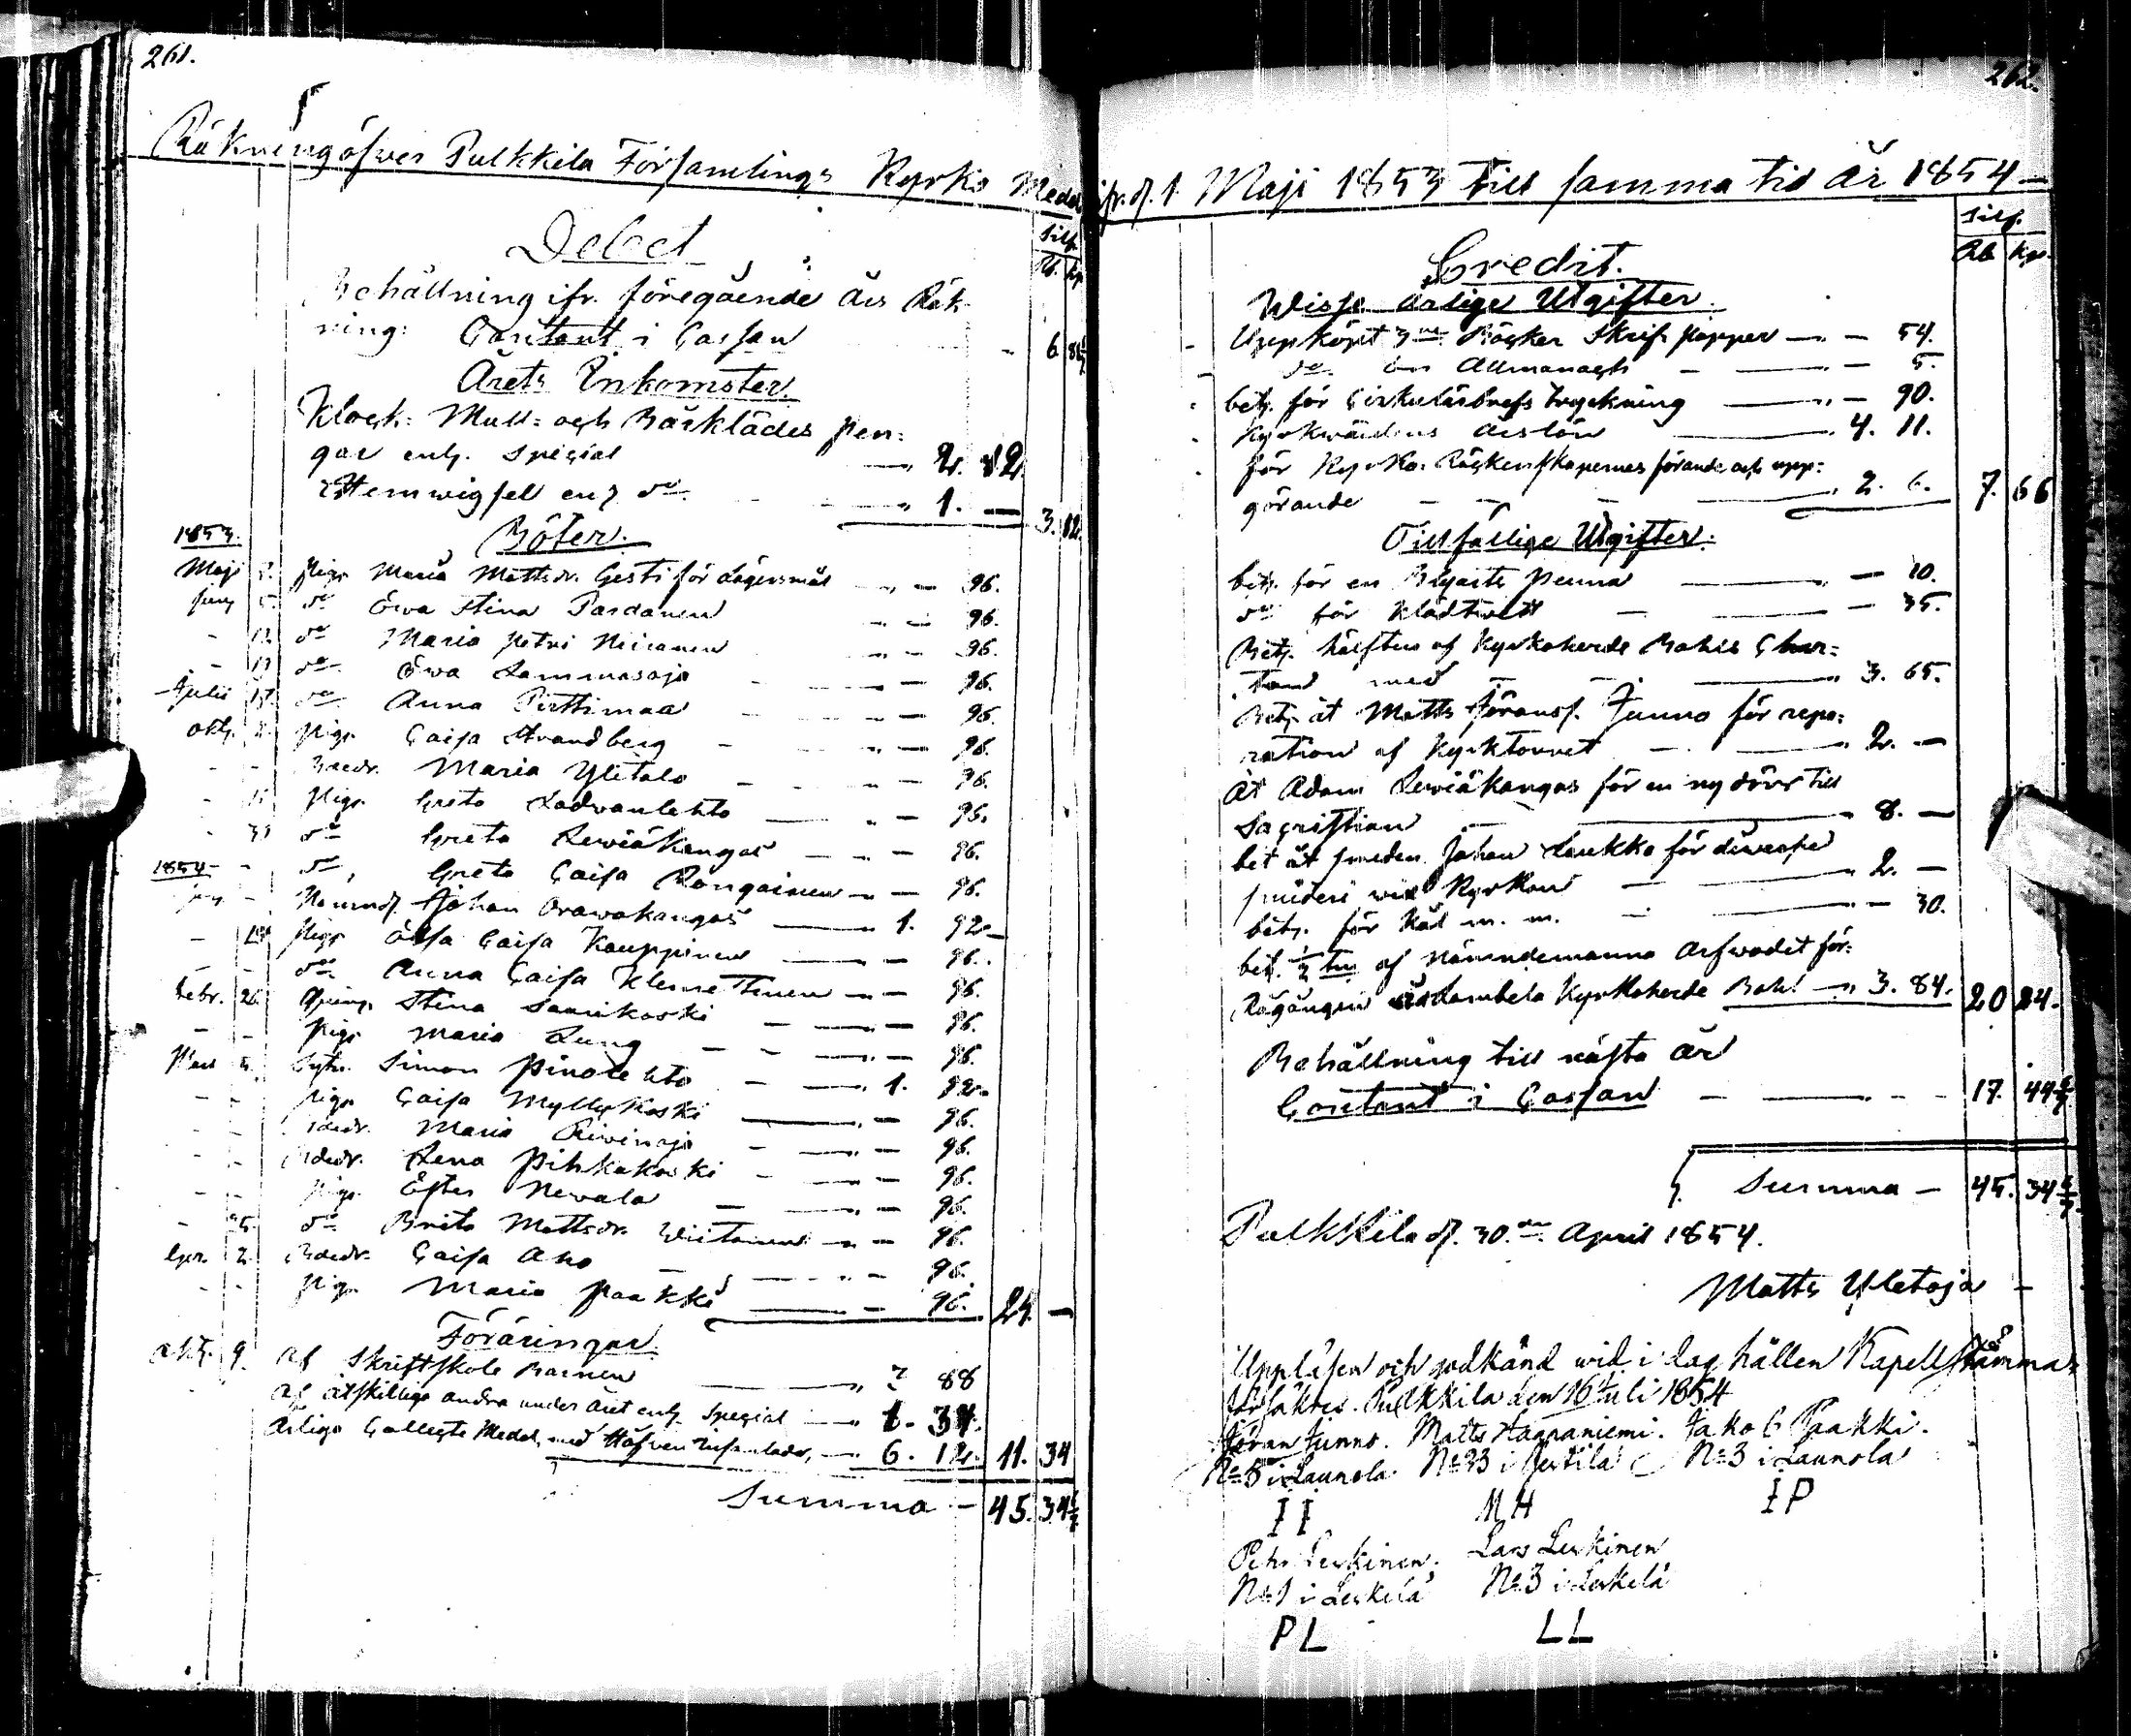 261.
Räkning öfwer Pulkkila Församlings Kyrko Medel
Silf.
Debet
Rb. kp.
Behållning ifr. föregående års Räk-
ning: Contant i Cassan - 6
Årets Inkomster.
Klock- Mull- och Bårklädes pen-
gar enl. Special 2. 12.
Stemwigsel enl do 1. — 3. 12.
1853. Böter.
Maji pig. Maria Mattsdr. Gesti för Lägersmål — 96.
Juny do Ewa Stina Pardanen — 96.
- 12 do Maria Petri Niiranen — 96.
- do Ewa Lammasoja — 96.
Julii 17. do Anna Pirttimaa — 96.
Oct. 2. pig. Caisa Strandberg — 96.
- - Bdedr. Maria Yletalo — 96.
- pig. Greta Ladvanlehto — 96.
- do Greta Lewiäkangas — 96.
1854 - do, Greta Caisa Rongainen — 96.
Johan Orawakangas — 1. 92.
- pig. Caisa Kauppinen — 96.
- - do Anna Caisa Klemettinen — 96.
Febr. 26. Stina Saarikoski — 96.
- - pig. Maria Lung — 96.
Mart. 5. Simon Pinolehto — 1. 92.
- - pig. Caisa Myllykoski — 96.
- - Bdedr. Maria Riwinoja — 96.
- - Bdedr. Lena Pihkakoski — 96.
- - pig. Ester Newala — 96.
- 25. do Brita Mattsdr. Wiitanen — 96.
Apr. 2. Bdedr. Caisa Aho — 96.
- - pig. Maria Paakki — 96. 24. —
Föräringar
Oct. 9. Af Skriftskole Barnen — 3 88
Af åtskillige andra under året enl. Special — 1. 34.
Årlige Collecte Medel, med Håfven insamlade, — 6. 12. 11. 34
Summa — 45. 34 6/7
262.
ifr. d. 1 Maji 1853 till samma tid år 1854 —
Silf.
Credit.
Rb. Kp.
Wisse årlige Utgifter.
Uppköpt 3ne Böcker Skrif papper — 54.
do en Allmanach — 5.
bet. för Cirkulärbrefs tryckning — 90.
Kyrkwärdens årslön — 4. 11.
för Kyrko Räckenskapernes förande och upp-
görande — 2. 6. 7. 66
Tillfällige Utgifter.
bet. för en Blyerts penna — 10.
do för Klädtwätt — 35.
Bet. hälften af Kyrkoherde Bahls
med — 3. 65.
Bet. åt Matts Göransf. Junno för repa-
ration af Kyrktornet — 2. —
Åt Adam Lewiäkangas för en ny dörr till
Sacristian — 8. —
bet åt smeden Johan Leukko för diwerse
smideri wid Kyrkan — 2. —
bet. för Kål m. m. — 30.
bet. 1/2 ten af Nämndemanna Arfwodet för
Rågången Lambela Kyrkoherde Bohl — 3. 84. 20 24.
Behållning till nästa år
Contant i Cassan — 17. 44 6/7
Summa — 45. 34 6/7
Pulkkila d. 30de April 1854.
Matts Yletoja
Uppläsen och godkänd wid i dag hållen Kapellstämma,
försäkras. Pulkkila den 16 Juli 1854
Jöran Junno. Matts Haapaniemi. Jakob Paakki.
No 5 i Launola. No 33 i Jestilä No 3 i Launola
I I M H I P
Pehr Leskinen. Lars Leskinen
No 1 i Leskelä No 3 i Leskelä
P L L L